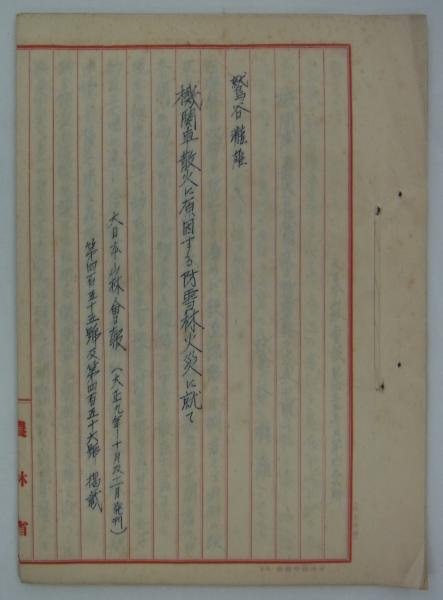 鷲谷雅雄
機関車散火に原因する防雪林火災に就て
大日本山林會報(大正九年十月及十一月発刊)
第四百五十五號及第四百五十六號 掲載
農林省